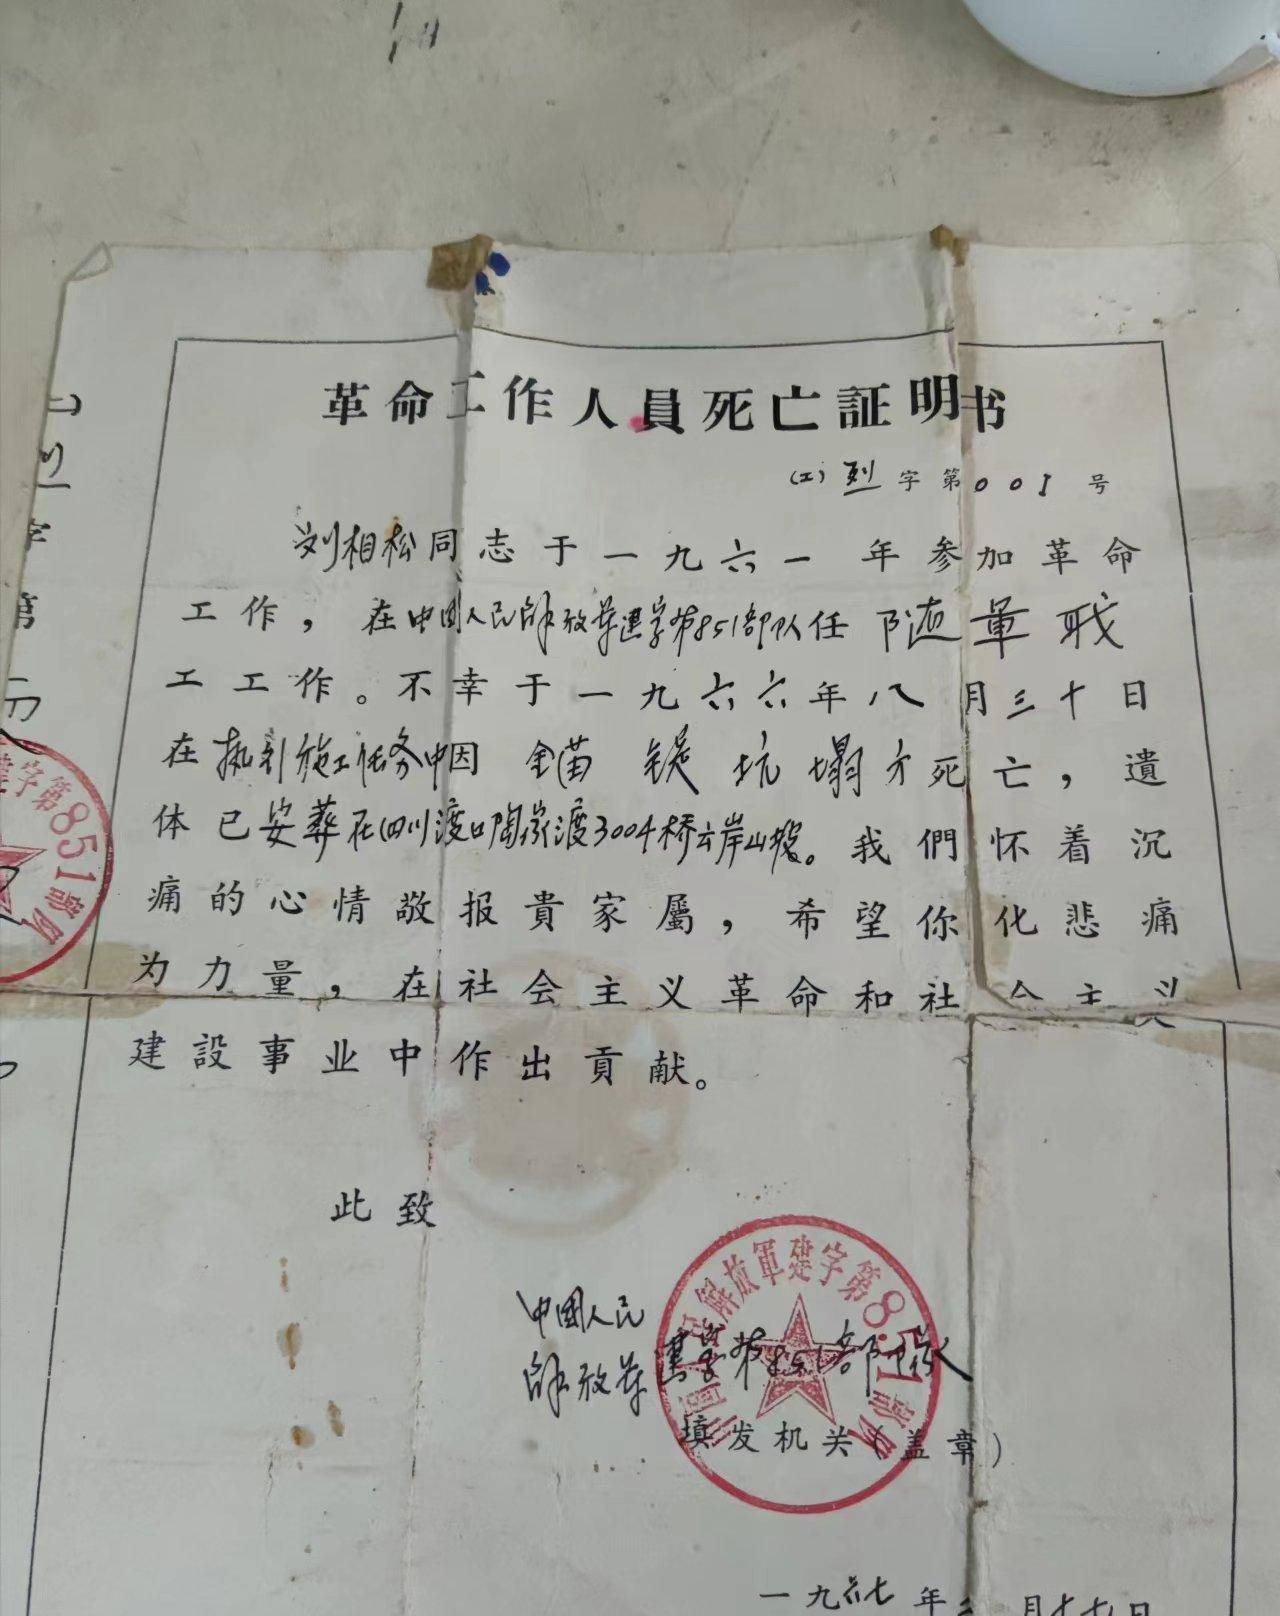 革命工作人員死亡証明书
(工)烈字第001号
刘相松同志于一九六一年参加革命
工作，在中国人民解放军建字第851部队任随軍职
工工作。不幸于一九六六年八月三十日
在执行施工任务中因 坑塌方死亡，遺
体已安葬在四川渡口陶家渡3004桥 岸山坡。我們怀着沉
痛的心情敬报貴家屬，希望你化悲痛
为力量，在社会主义革命和社会主义
建設事业中作出貢献。
此致
中國人民
解放军建字第851部队
填发机关(盖章)
解放軍建字第851部队
一九六七年 月十七日
字第
建字第851部队